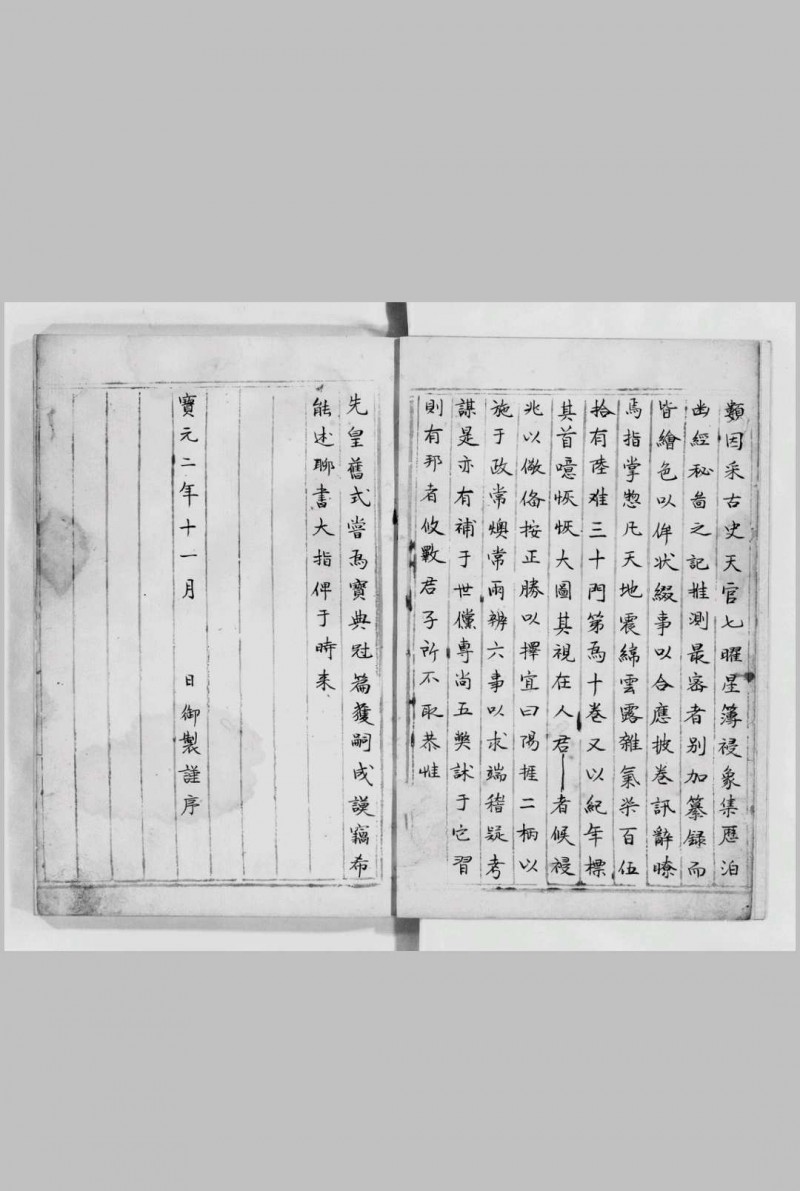 類因采古史天官七曜星簿祲象集應泊
幽經秘啚之記推測最審者別加纂録而
皆繪色以侔状綴事以合應披卷訊辭瞭
焉指掌惣凡天地震綿雲露雜氣柒百伍
拾有陸难三十門第爲十卷又以紀年標
其首噫恢恢大圖其視在人君者候祲
兆以儆俻按正勝以擇宜曰陽握二柄以
施于政常燠常雨辨六事以求端稽疑考
謀是亦有補于世儻專尚五㢡訹于它習
則有邦者攸斁君子所不取恭惟
先皇舊式嘗爲寶典冠篇獲嗣成謨竊希
能述聊書大指俾于時来
寳元二年十一月　日御製謹序